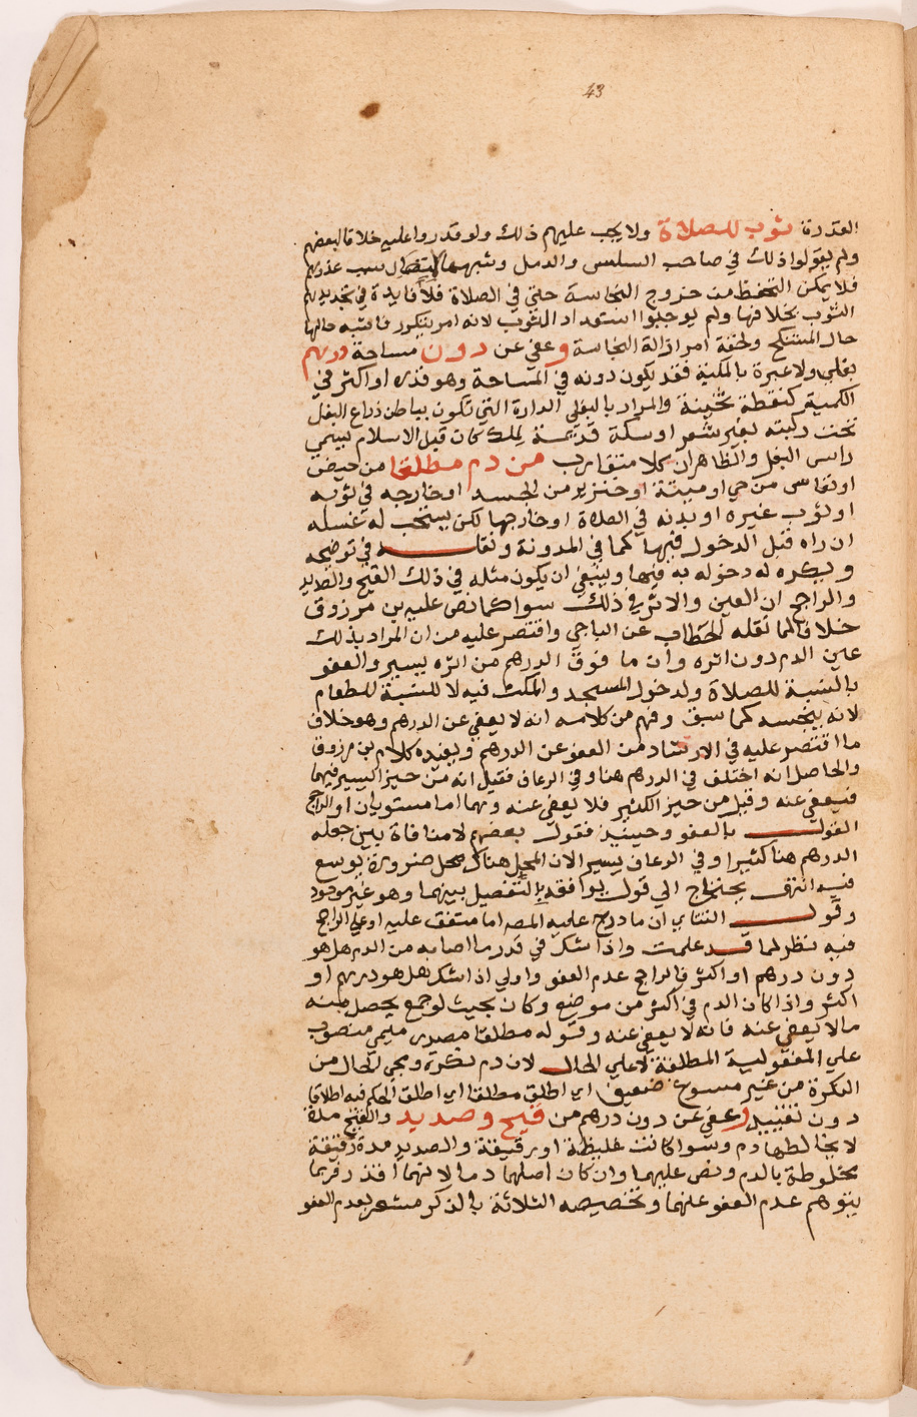 43
القدرة ثوب للصلاة ولا يجب عليهم ذلك ولو قدروا عليه خلافا لبعضهم
ولم يقولوا ذلك في صاحب السلس والدمل وشبههما لاتصال سبب عذرهم
فلا يمكن التحفظ من خروج النجاسة حتي في الصلاة فلا فايدة في تجديدهم
الثوب بخلافها ولم يوجبوا استعداد الثوب لانه امر يتكرر فاشبه حالها
حال المستنكح ولخفة امر ازالة النجاسة وعفي عن دون مساحة درهم
بغلي ولا عبرة بالكمية فقد يكون دونه في المساحة وهو قدره او اكثر في
الكمية كنقطة ثخينة والمراد بالبغلي الدارة التي تكون بباطن ذراع البغل
تحت ركبته بغير شعر او سكة قديمة لملك كان قبل الاسلام يسمي
راس البغل والظاهران كلا متقارب من دم مطلقا من حيض
او نفاس من حي او ميتة او خنزير من الجسد او خارجه في ثوبه
او ثوب غيره او بدنه في الصلاة او خارجها لكن يستحب له غسله
ان راه قبل الدخول فيها كما في المدونة ونقل في توضيحه
ويكره له دخوله به فيها وينبغي ان يكون مثله في ذلك القيح والصديد
والراجح ان العين والاثر في ذلك سوا كما نص عليه بن مرزوق
خلافا لما نقله الحطاب عن الباجي واقتصر عليه من ان المراد بذلك
عين الدم دون اثره وان ما فوق الدرهم من اثره يسير والعفو
بالنسبة للصلاة ولدخول المسجد والمكث فيه لا للنسبة للطعام
لانه ينجسه كما سبق وفهم من كلامه انه لا يعفي عن الدرهم وهو خلاف
ما اقتصر عليه في الارشاد من العفو عن الدرهم ويفيده كلام بن مرزوق
والحاصل انه اختلف في الدرهم هنا وفي الرعاف فقيل انه من حيز اليسير فيهما
فيعفي عنه وقيل من حيز الكثير فلا يعفي عنه وهما اما مستويان او الراجح
القول بالعفو وحينيذ فقول بعضهم لا منافاة بين جعله
الدرهم هنا كثيرا وفي الرعاف يسيرا لان المحل هناك محل ضرورة يوسع
فيه انتهي يحتاج الي قول يوافقه بالتفصيل بينهما وهو غير موجود
وقول التتاي ان ما درج عليه المصه اما متفق عليه او علي الراجح
فيه نظر لما قد علمت واذا شك في قدر ما اصابه من الدم هل هو
دون درهم او اكثر فالراجح عدم العفو واولي اذا شك هل هو درهم او
اكثر واذا كان الدم في اكثر من موضع وكان بحيث لو جمع يحصل منه
ما لا يعفي عنه فانه لا يعفي عنه وقوله مطلقا مصدر ميمي منصوب
علي المفعولية المطلقة لا علي الحال لان دم نكرة ومجي الحال من
النكرة من غير مسوغ ضعيف اي اطلق مطلقا اي اطلق الحكم فيه اطلاقا
دون تقييد وعفي عن دون درهم من قيح وصديد والقيح مدة
لا يخالطها دم وسوا كانت غليظة او رقيقة والصديد مدة رقيقة
مخلوطة بالدم ونص عليهما وان كان اصلهما دما لانهما اقذر فربما
يتوهم عدم العفو عنهما وتخصيصه الثلاثة بالذكر مشعر بعدم العفو